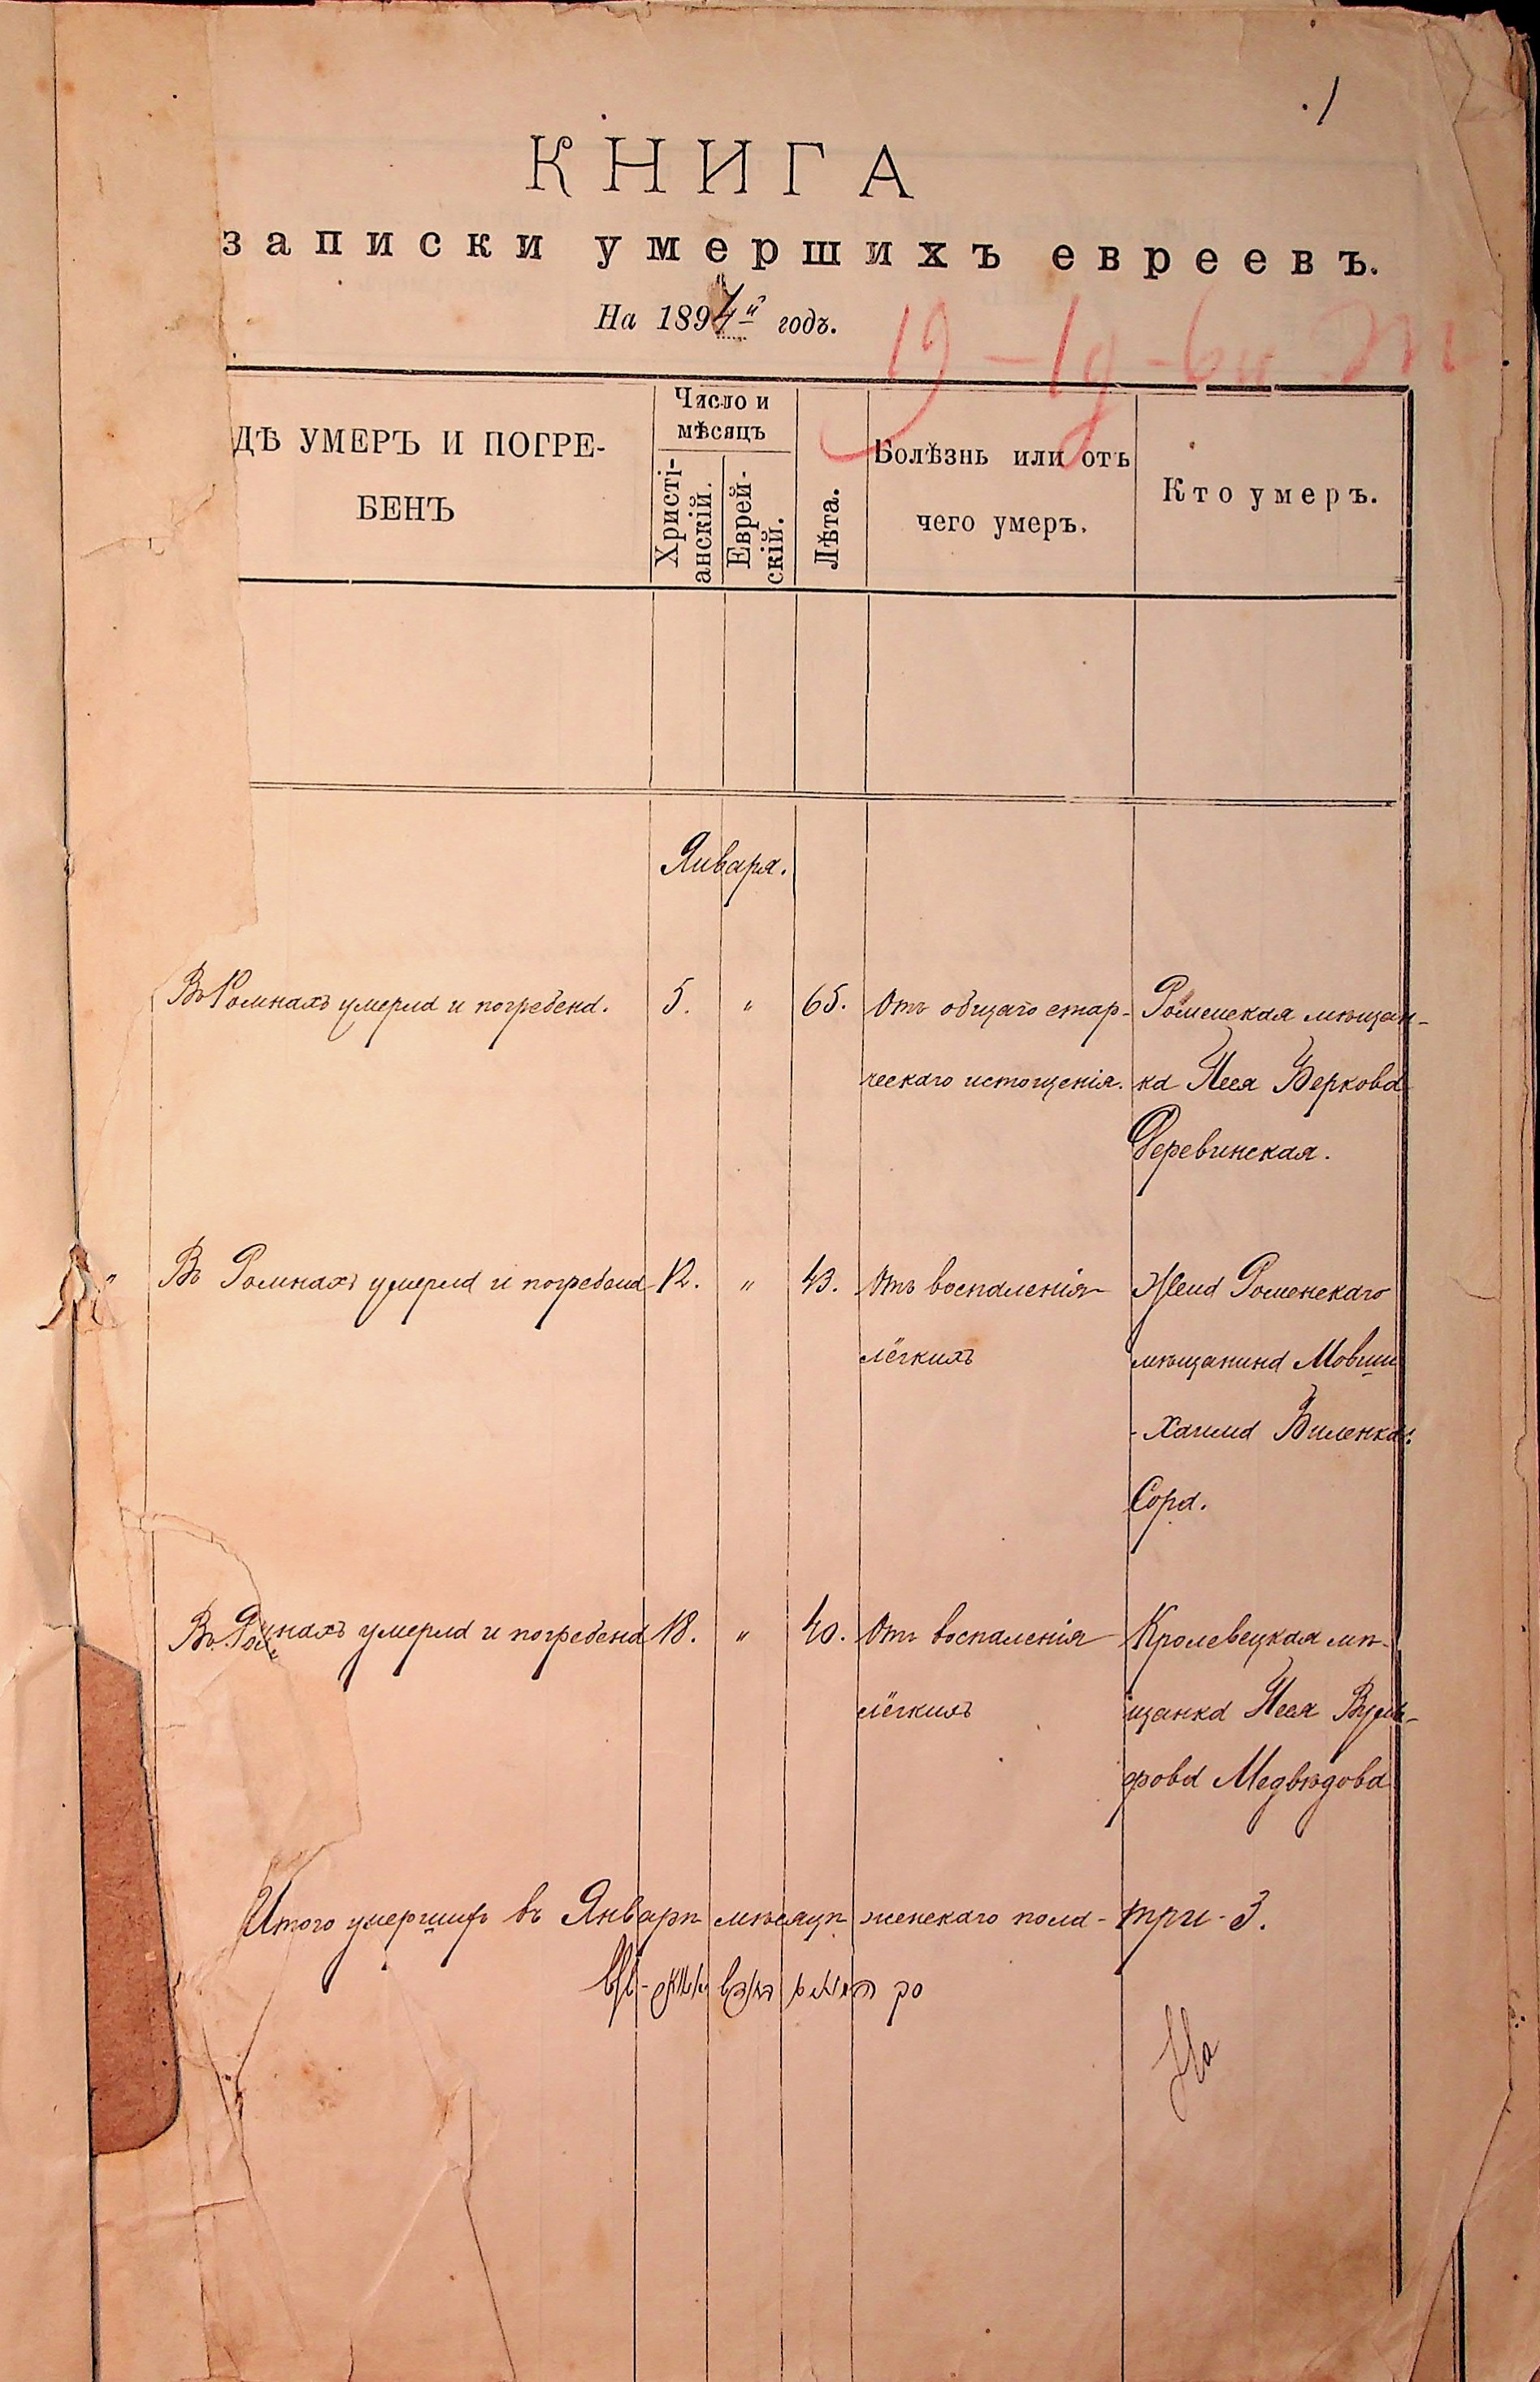 1
КНИГА
записки умершихъ евреевъ.
На 1894й годъ.
ДѢ УМЕРЪ И ПОГРЕ-
БЕНЪ
Число и
мѣсяцъ
Христі-
анскій.
Еврей-
скій.
Лѣта.
Болѣзнь или отъ
чего умеръ.
Кто умеръ.
Января.
Въ Ромнахъ умерла и погребена. 5. " 65. Отъ общаго стар- Роменская мѣщан-
ческаго истощенія. ка Песя Беркова
Деревинская.
" Въ Ромнахъ умерла и погребена 12. " 43. Отъ воспаленія Жена Роменскаго
лёгкихъ мѣщанина Мовши
-Хаима Виленка:
Сора.
Въ Ромнахъ умерла и погребена 18. " 40. Отъ воспаленія Кролевецкая мѣ-
лёгкихъ щанка Песя Вуль-
фова Медвѣдова
Итого умершихъ въ Январѣ мѣсяцѣ женскаго пола - три - 3.